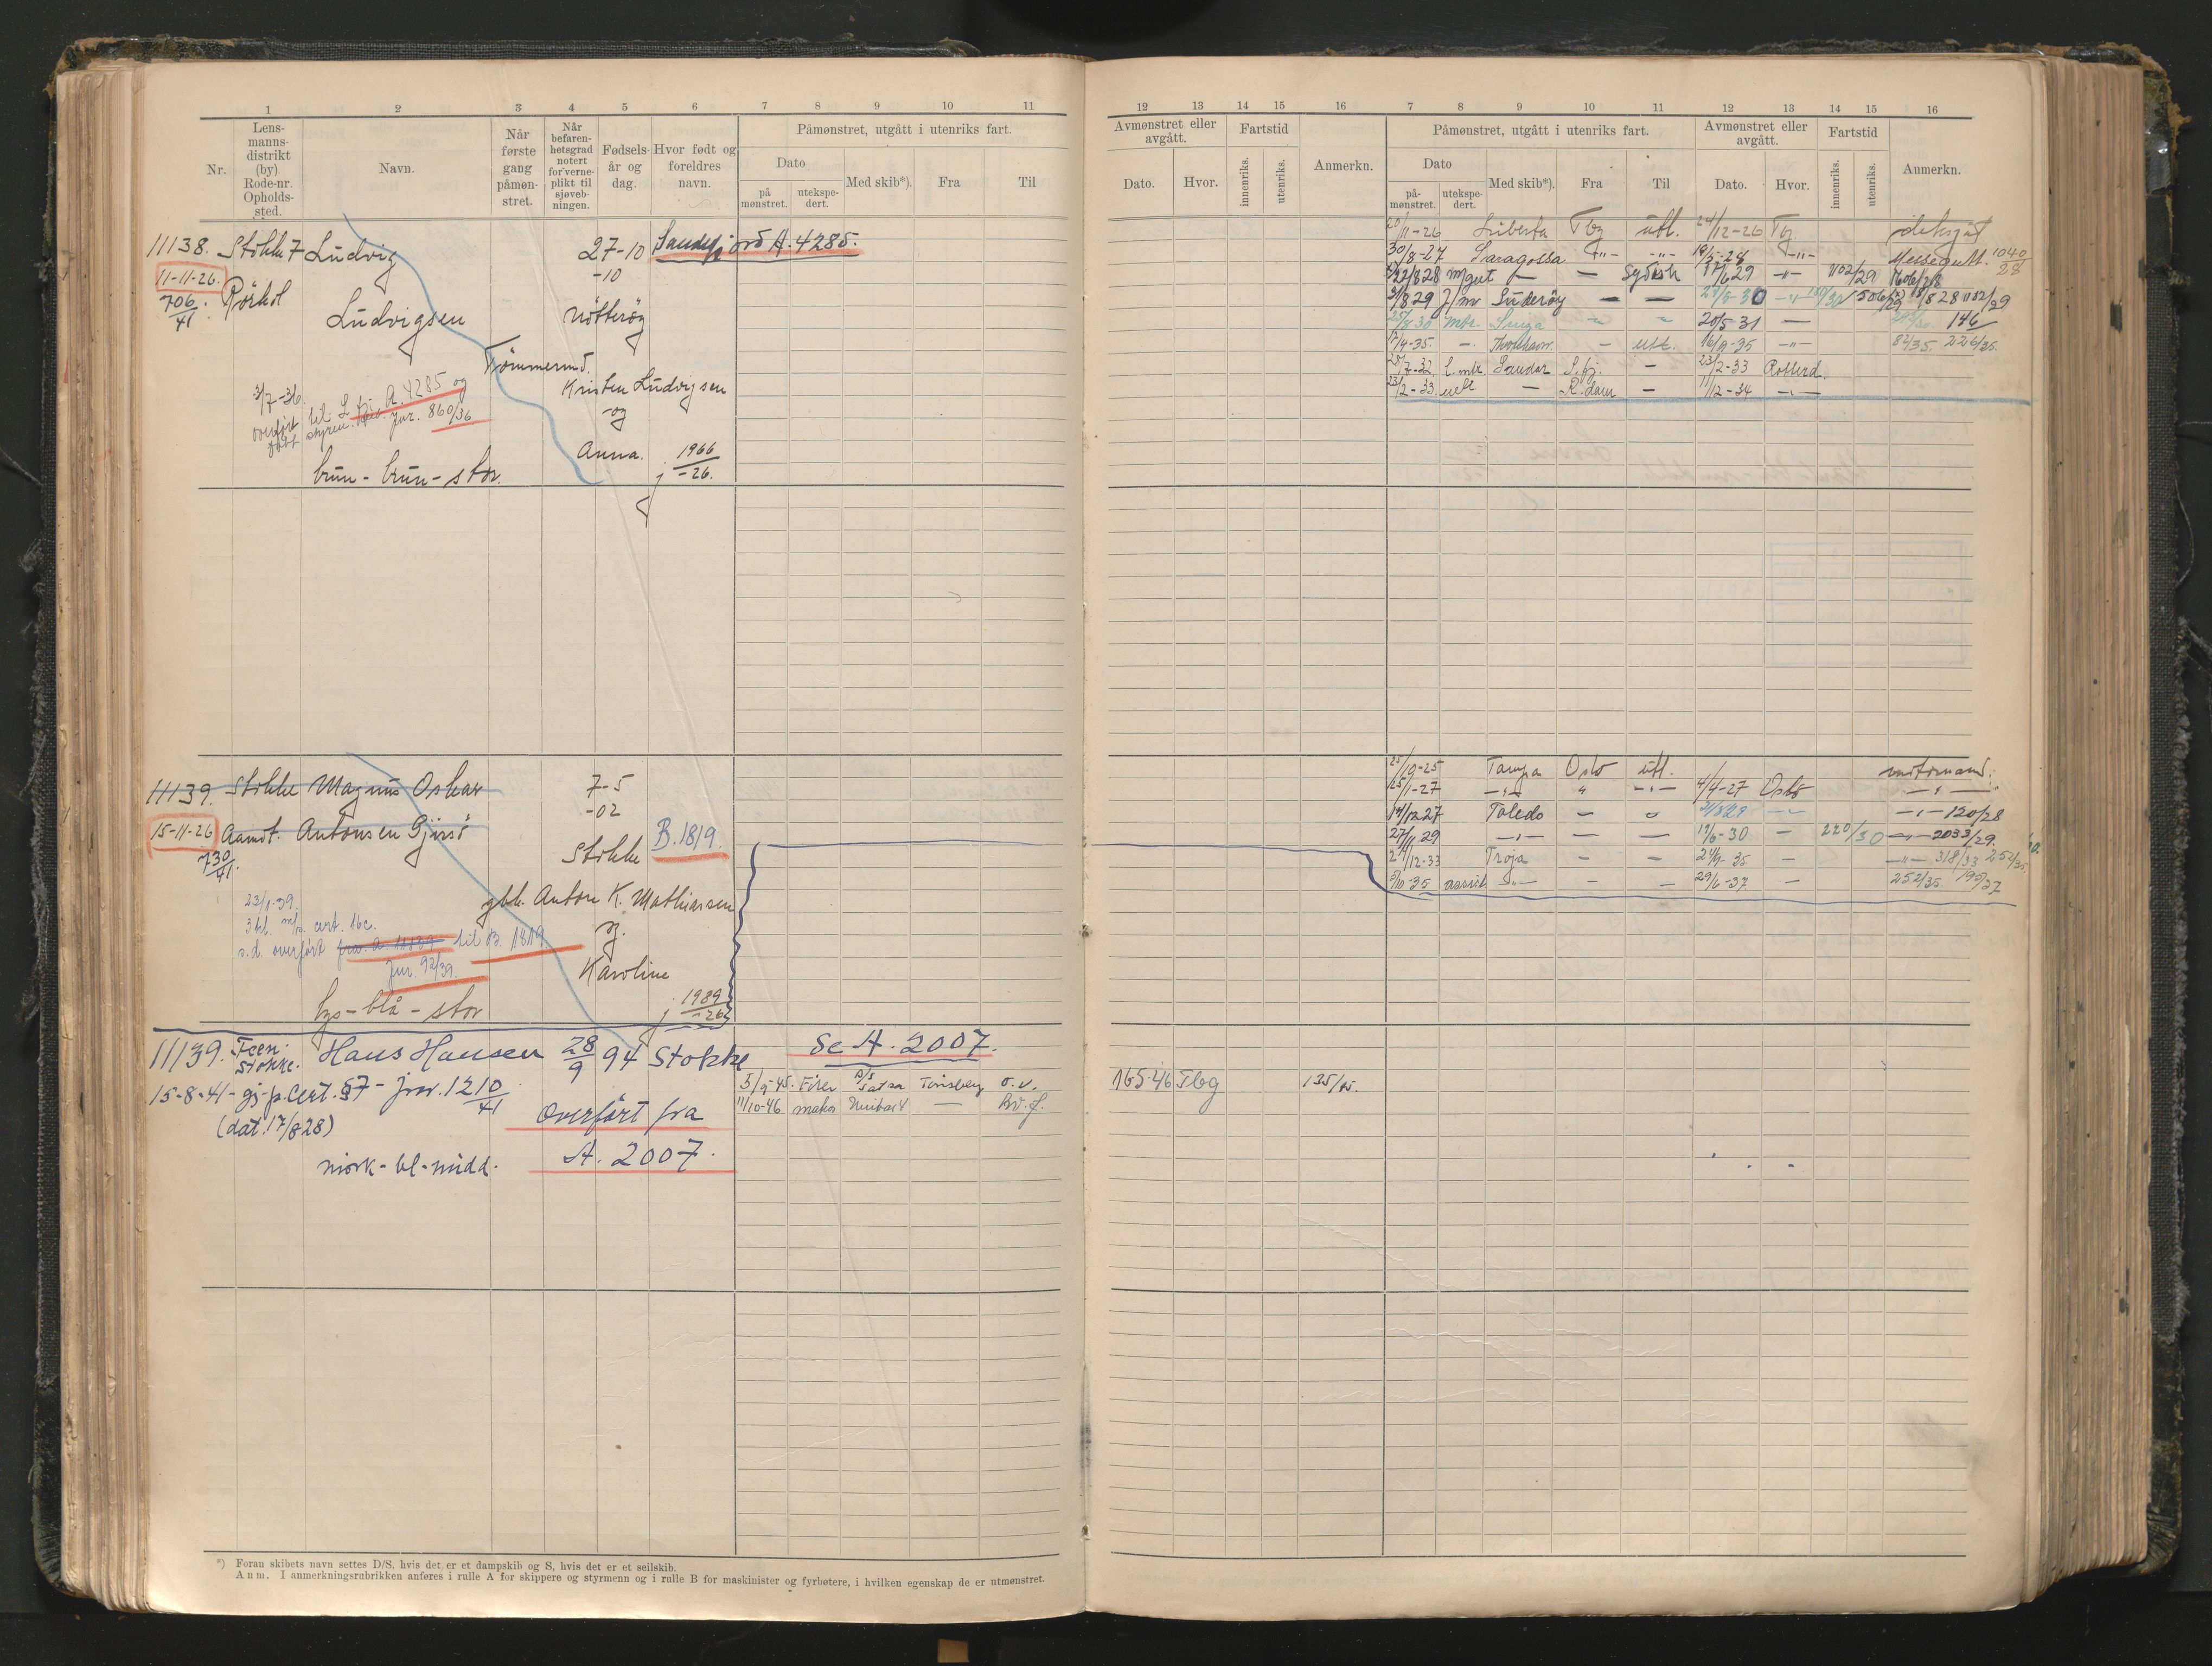 1 2 3 4 5 6 7 8 9 10 11
Nr.
Lens-
manns-
distrikt
(by)
Rode-nr.
Opholds-
sted.
Navn.
Når
første
gang
påmøn-
stret.
Når
befaren-
hetsgrad
notert
for verne-
plikt til
sjøveb-
ningen.
Fødsels-
år og
dag.
Hvor født og
foreldres
navn.
Påmønstret, utgått i utenriks fart.
Dato
på
mønstret.
utekspe-
dert.
Med skib*).
Fra
Til
11138. Stokke 7 Ludvig 27-10 Sandefjord A. 4285.
11-11-26. -10
706/41. Rørkol
Ludvigsen Nøtterøy
Tømmermd.
Kristen Ludvigsen
3/7-36. og
overført til A. 4285 og
jur. 860/36
Anna. 1966
brun - brun - stor. j -26.
11139. Stokke Magnus Oskar 7-5
-02
15-11-26 Aamot. Antonsen Gjirsö B. 1819.
730/41. Stokke
gbr. Anton K. Mathiassen
23/1-39. og
cert. 16c.
s.d. overført fra A. 11139 til B. 1819
jur. 92/39. Karoline
lys - blå - stor j 1989/-26
11139. Feen. Stokke. Hans Hansen 28/9 94 Stokke Se A. 2007.
15-8-41 - gj. p. Cert. §7 - jnr. 1210/41
5/9-45. Fører D/S Tønsberg o.v.
11/10-46
Overført fra
(dat. 17/8 28)
A. 2007.
mørk - bl - midd.
*) Foran skibets navn settes D/S, hvis det er et dampskib og S, hvis det er et seilskib.
Anm. I anmerkningsrubrikken anføres i rulle A for skippere og styrmenn og i rulle B for maskinister og fyrbøtere, i hvilken egenskap de er utmønstret.
12 13 14 15 16 7 8 9 10 11 12 13 14 15 16
Avmønstret eller
avgått.
Dato. Hvor.
Fartstid
innenriks.
utenriks.
Anmerkn.
Påmønstret, utgått i utenriks fart.
Dato
på-
mønstret.
utekspe-
dert.
Med skib*).
Fra
Til
Avmønstret eller
avgått.
Dato. Hvor.
Fartstid
innenriks.
utenriks.
Anmerkn.
20/11-26 Liberta Tbg utl. 24/12-26 Tbg. deksgut
30/8-27 Saragossa -"- -"- -"- Messegutt. 1040/28
m/gut — — Sydish 17/6 29 -"- 1102/29
31/8 29 J/m Suderøy — —
25/8 30 20/5-31 — 146
17/4-35. — Thorshavn. — utl. 16/9-35 -"- 82/35. 226/35.
7-32 Sandar S.fj. — 23/2-33 Rotterd.
23/2-33 — R.dam — 11/12-34 -"-
25/9-25 Tampa Oslo utl. motormand.
25/1-27 -"- " -"- 4/4-27 Oslo -"-
14/12 27 Toledo — — -"- 120/28
27/11 29 -"- — — 19/6-30 — 220/30 -"- 2033/29.
24/12-33 Troja — — 24/9-35 — -"- 318/33 252/35
5/10-35 assist. -"- — — 29/6-37 — 252/35 195/37
16-5-46 Tbg 135/45.